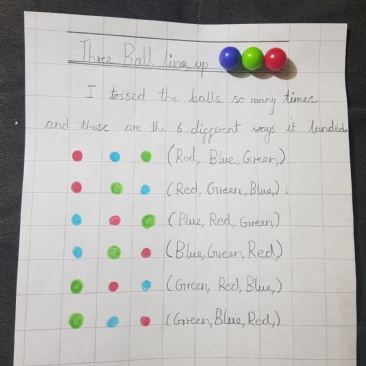 Three Ball line up
I tossed the balls so many times
and these are the 6 different ways it landed.
(Red, Blue, Green,)
(Red, Green, Blue,).
(Blue, Red, Green)
(Blue, Green, Red)
(Green, Red, Blue,)
(Green, Blue, Red,)